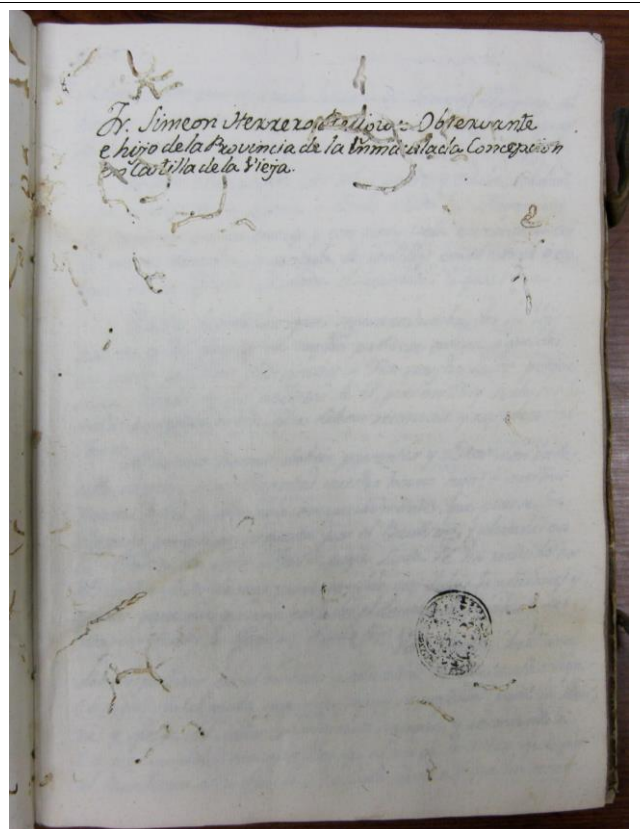 Fr. Simeon Herrero, Religioso Observante
e hijo de la Provincia de la Inmaculada Concepcion
en Castilla de la Vieja.